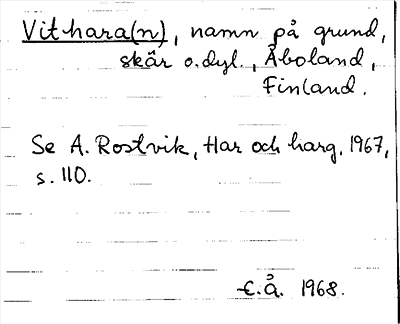 Vithara(n), namn på grund,
skär o.dyl., Åboland,
Finland.
Se A. Rostvik, Har och harg, 1967,
s. 110.
E.Å. 1968.